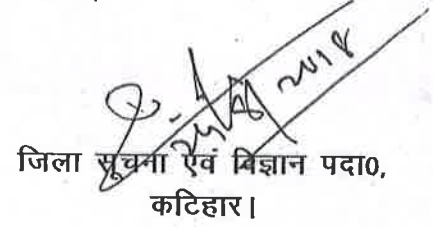 2018
जिला सूचना एवं विज्ञान पदा0,
कटिहार।